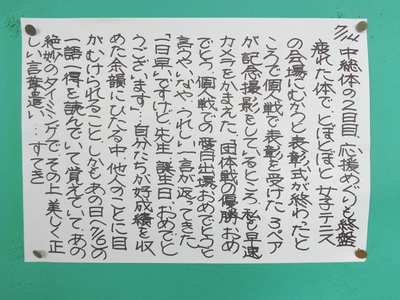 中総体の2日目、応援めぐりも終盤
疲れた体で、とぼとぼと女子テニス
の会場にむかうと表彰式が終わったと
ころで個人戦で表彰を受けた3ペア
が記念撮影をしているところ。私も早速
カメラをかまえた。団体戦の優勝、おめ
でとう、個人戦での出場おめでとうと
言うやいなや、うれしい言が返ってきた。
「一日早いですけど、先生、誕生日、おめでと
うございます…。自分たちが好成績を収
めた余韻にひたる中、他人のことに目
がむけられること、しかもあの日(7/6)の
一語一得を読んでいて覚えていて、あの
絶妙のタイミングで、その上、美しく正
しい言葉遣い…。すてき